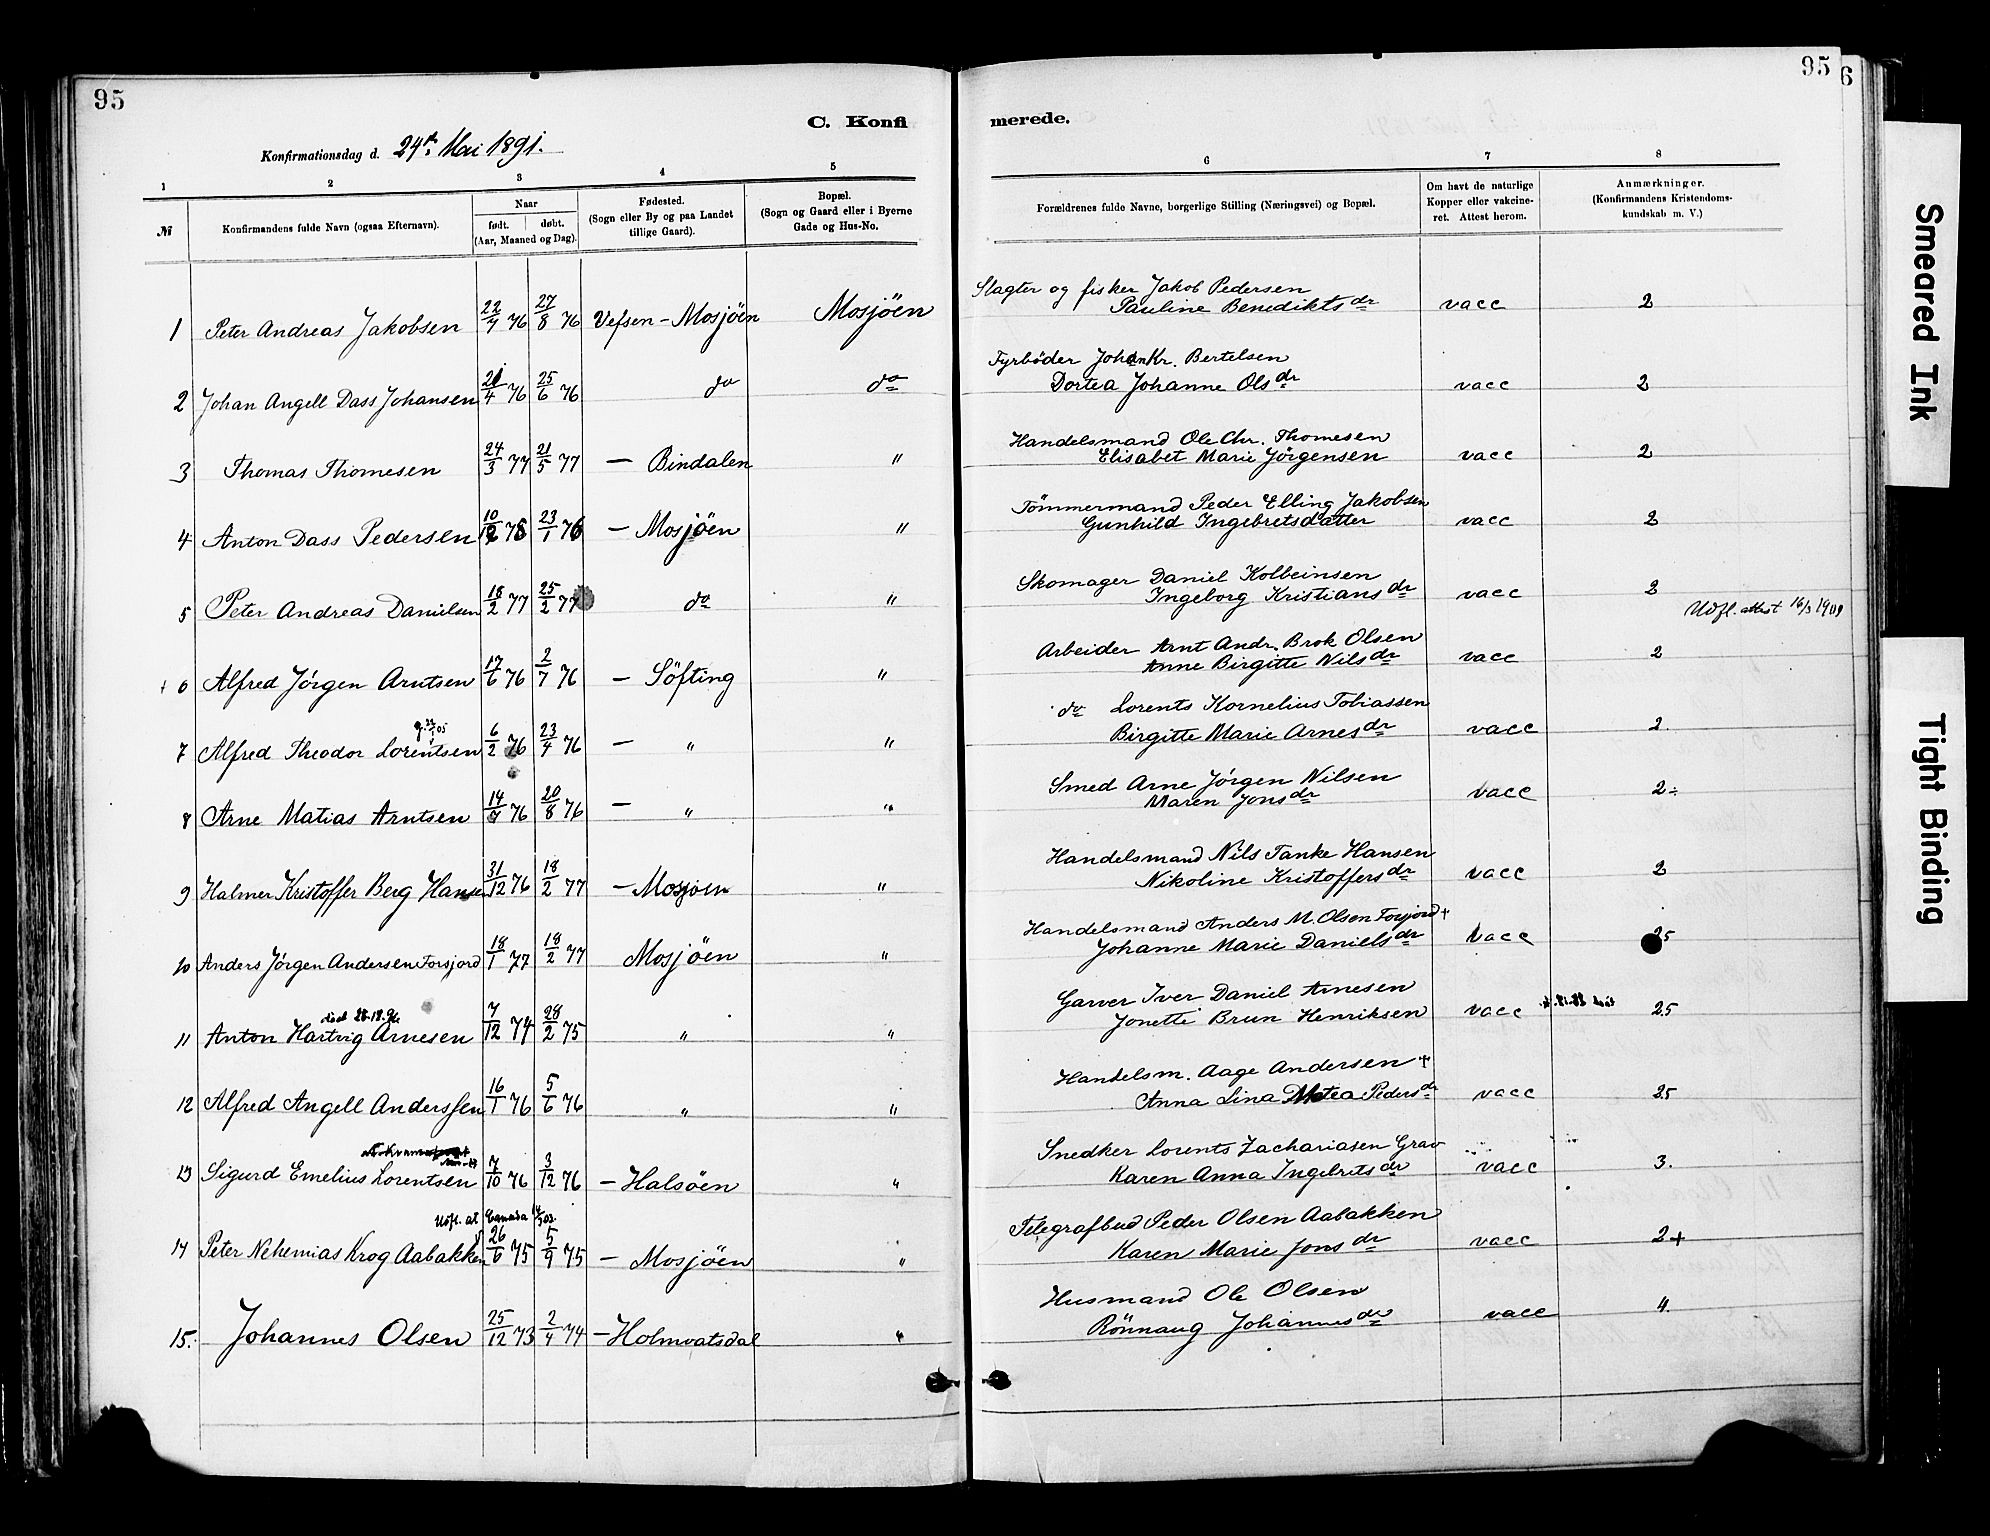 95
C. Konfi
Konfirmationsdag d. 24de Mai 1891.
1 2 3 4 5
№ Konfirmandens fulde Navn (ogsaa Efternavn). Naar født. døbt. (Aar, Maaned og Dag). Fødested. (Sogn eller By og paa Landet tillige Gaard). Bopæl. (Sogn og Gaard eller i Byerne Gade og Hus-No.
1 Peter Andreas Jakobsen 22/7 76 27/8 76 Vefsen - Mosjöen Mosjöen
2 Johan Angell Dass Johansen 21/4 76 25/6 76 do do
3 Thomas Thomesen 24/3 77 21/5 77 — Bindalen "
4 Anton Dass Pedersen 10/12 75 23/1 76 — Mosjöen "
5 Peter Andreas Danielsen 18/2 77 25/2 77 do "
6 Alfred Jörgen Arntsen 17/6 76 2/7 76 — Söfting "
7 Alfred Theodor Lorentsen 6/2 76 23/4 76 — " "
8 Arne Matias Arntsen 14/7 76 20/8 76 — " "
9 Halmer Kristoffer Berg Hansen 31/12 76 18/2 77 — Mosjöen "
10 Anders Jörgen Andersen Forsjord 18/1 77 18/2 77 Mosjöen "
död 28.12.96
11 Anton Hartvig Arnesen 7/12 74 28/2 75 " "
12 Alfred Angell Anderssen 16/1 76 5/6 76 " "
13 Sigurd Emelius Lorentsen 7/10 76 3/12 76 — Halsöen "
Udfl. at Canada
14 Peter Nehemias Krog Aabakken 26/6 75 5/9 75 — Mosjöen "
15. Johannes Olsen 25/12 73 2/4 74 — Holmvatsdal "
95
6
merede.
6 7 8
Forældrenes fulde Navne, borgerlige Stilling (Næringsvei) og Bopæl. Om havt de naturlige Kopper eller vakcineret. Attest herom. Anmærkninger. (Konfirmandens Kristendomskundskab m. V.)
Slagter og fisker Jakob Pedersen
Pauline Benediktsdr vacc 2
Fyrböder Johan Kr. Bertelsen
Dortea Johanne Olsdr vacc 2
Handelsmand Ole Chr. Thomesen
Elisabet Marie Jörgensen vacc 2
Tömmermand Peder Elling Jakobsen
Gunhild Ingebretsdatter vacc 2
Skomager Daniel Kolbeinsen
Ingeborg Kristiansdr vacc 2
Udfl. attest 16/3 1909
Arbeider Arnt Andr. Brok Olsen
Anne Birgitte Nilsdr vacc 2
do Lorents Kornelius Tobiassen
Birgitte Marie Arnesdr vacc 2.
Smed Arne Jörgen Nilsen
Maren Jonsdr vacc 2÷
Handelsmand Nils Tanke Hansen
Nikoline Kristoffersdr vacc 2
Handelsmand Anders M. Olsen Forsjord +
Johanne Marie Danielsdr vacc 25
Garver Iver Daniel Arnesen
Jonette Brun Henriksen vacc 25
Handelsm. Aage Andersen +
Anna Lina Metea Pedersdr vacc 25
Snedker Lorents Zachariasen Grav
Karen Anna Ingebritsdr vacc 3.
Telegrafbud Peder Olsen Aabakken
Karen Marie Jonsdr vacc 2+
Husmand Ole Olsen
Rönnaug Johannesdr vacc 4.
Smeared Ink
Tight Binding